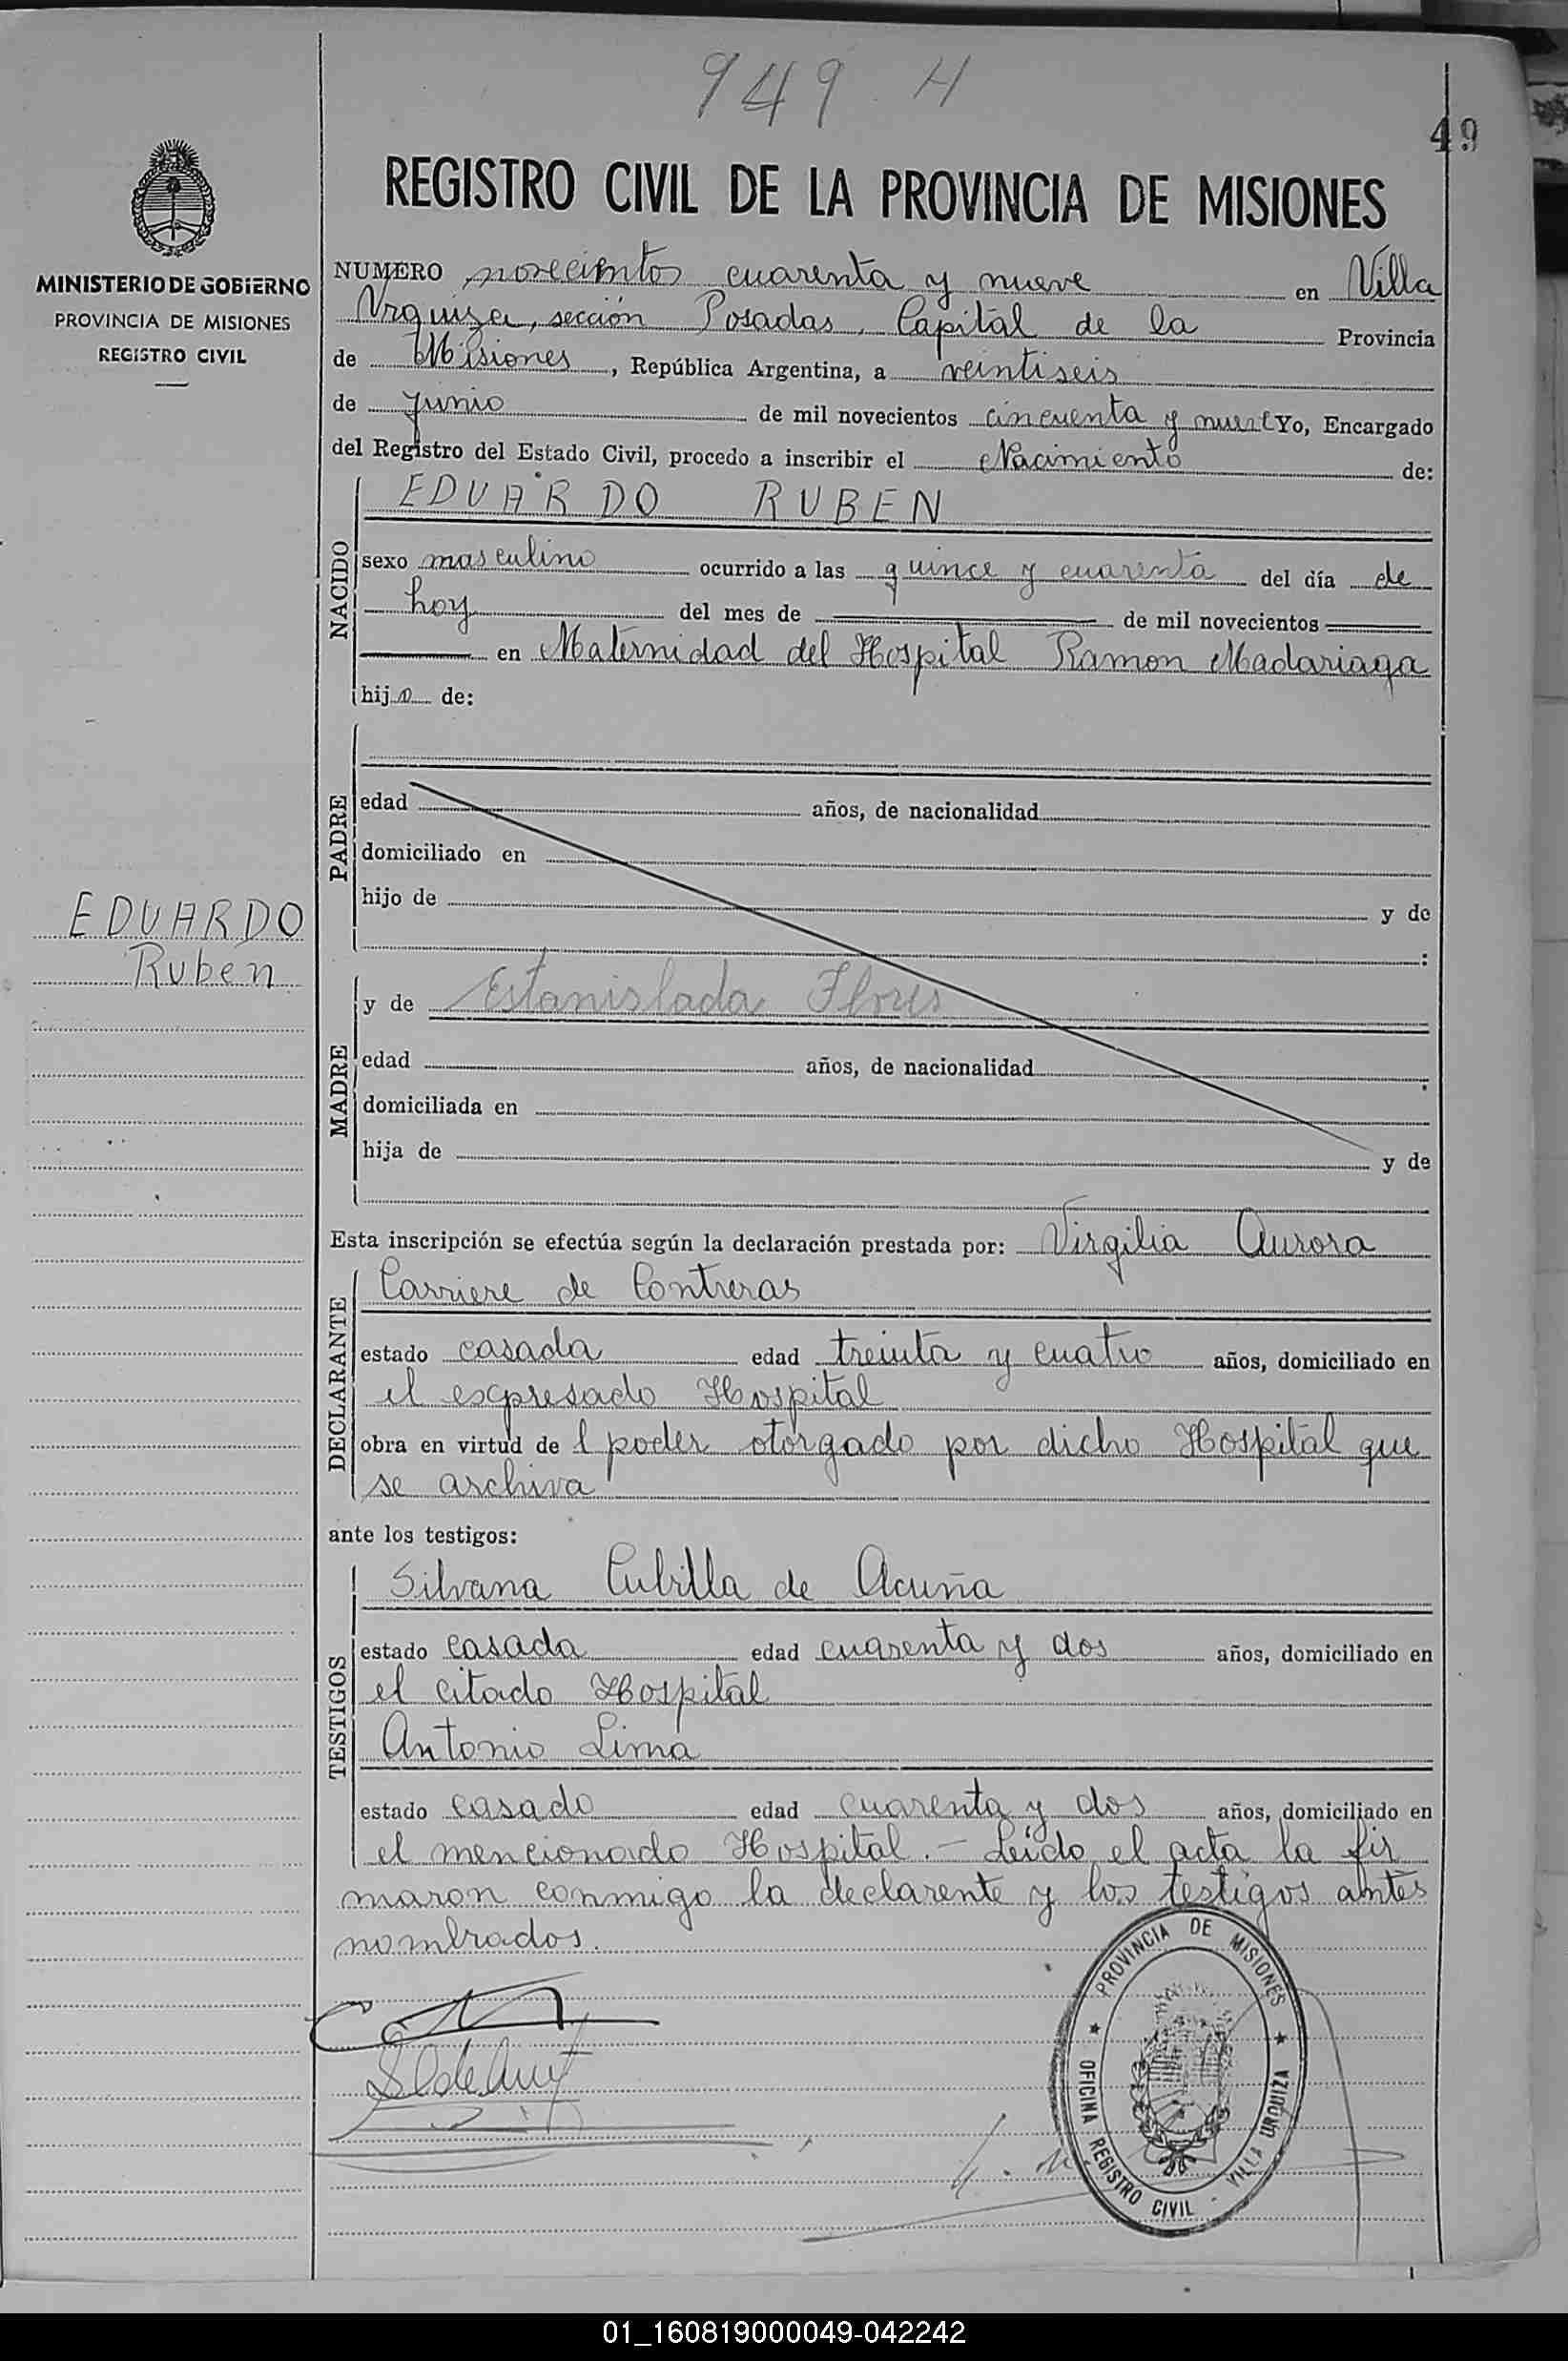 949 H
49
REGISTRO CIVIL DE LA PROVINCIA DE MISIONES
MINISTERIO DE GOBIERNO
PROVINCIA DE MISIONES
REGISTRO CIVIL
NUMERO novecientos cuarenta y nueve en Villa
Urquiza, sección Posadas, Capital de la Provincia
de Misiones, República Argentina, a veintiseis
de Junio de mil novecientos cincuenta y nueve Yo, Encargado
del Registro del Estado Civil, procedo a inscribir el Nacimiento de:
NACIDO
EDUARDO RUBEN
sexo masculino ocurrido a las quince y cuarenta del día de
hoy del mes de de mil novecientos
en Maternidad del Hospital Ramon Madariaga
hijo de:
PADRE
edad años, de nacionalidad
domiciliado en
hijo de y de
:
EDUARDO
Ruben
MADRE
y de Estanislada Flores
edad años, de nacionalidad
domiciliada en
hija de y de
Esta inscripción se efectúa según la declaración prestada por: Virgilia Aurora
DECLARANTE
Carriere de Contreras
estado casada edad treinta y cuatro años, domiciliado en
el expresado Hospital
obra en virtud de l poder otorgado por dicho Hospital que
se archiva
ante los testigos:
TESTIGOS
Silvana Cubilla de Acuña
estado casada edad cuarenta y dos años, domiciliado en
el citado Hospital
Antonio Lima
estado casado edad cuarenta y dos años, domiciliado en
el mencionado Hospital. – Leído el acta la fir
maron conmigo la declarente y los testigos antes
nombrados.
PROVINCIA DE MISIONES
OFICINA REGISTRO CIVIL - VILLA URQUIZA
01_160819000049-042242